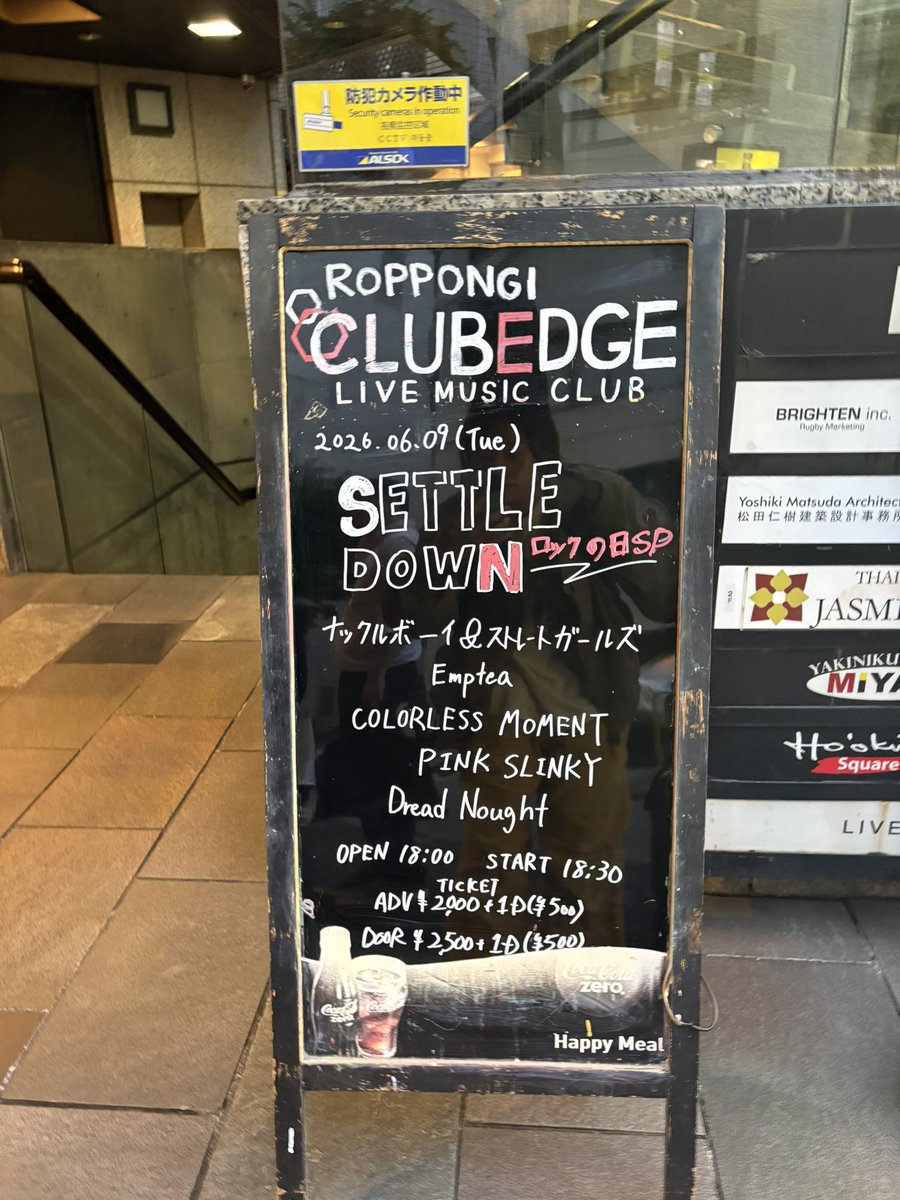 防犯カメラ作動中
Security cameras in operation
ALSOK
ROPPONGI
CLUBEDGE
LIVE MUSIC CLUB
2026.06.09(Tue)
SETTLE
DOWN ロックの日SP
ナックルボーイ&ストレートガールズ
Emptea
COLORLESS MOMENT
PINK SLINKY
Dread Nought
OPEN 18:00 START 18:30
TICKET
ADV ¥2,000+1D(¥500)
DOOR ¥2,500+1D(¥500)
Coca-Cola
zero
Coca-Cola
zero
Happy Meal
BRIGHTEN inc.
Rugby Marketing
Yoshiki Matsuda Architec
松田仁樹建築設計事務所
2F
THAI
JASMI
YAKINIKU
MIYA
Ho'oku
Square
LIVE